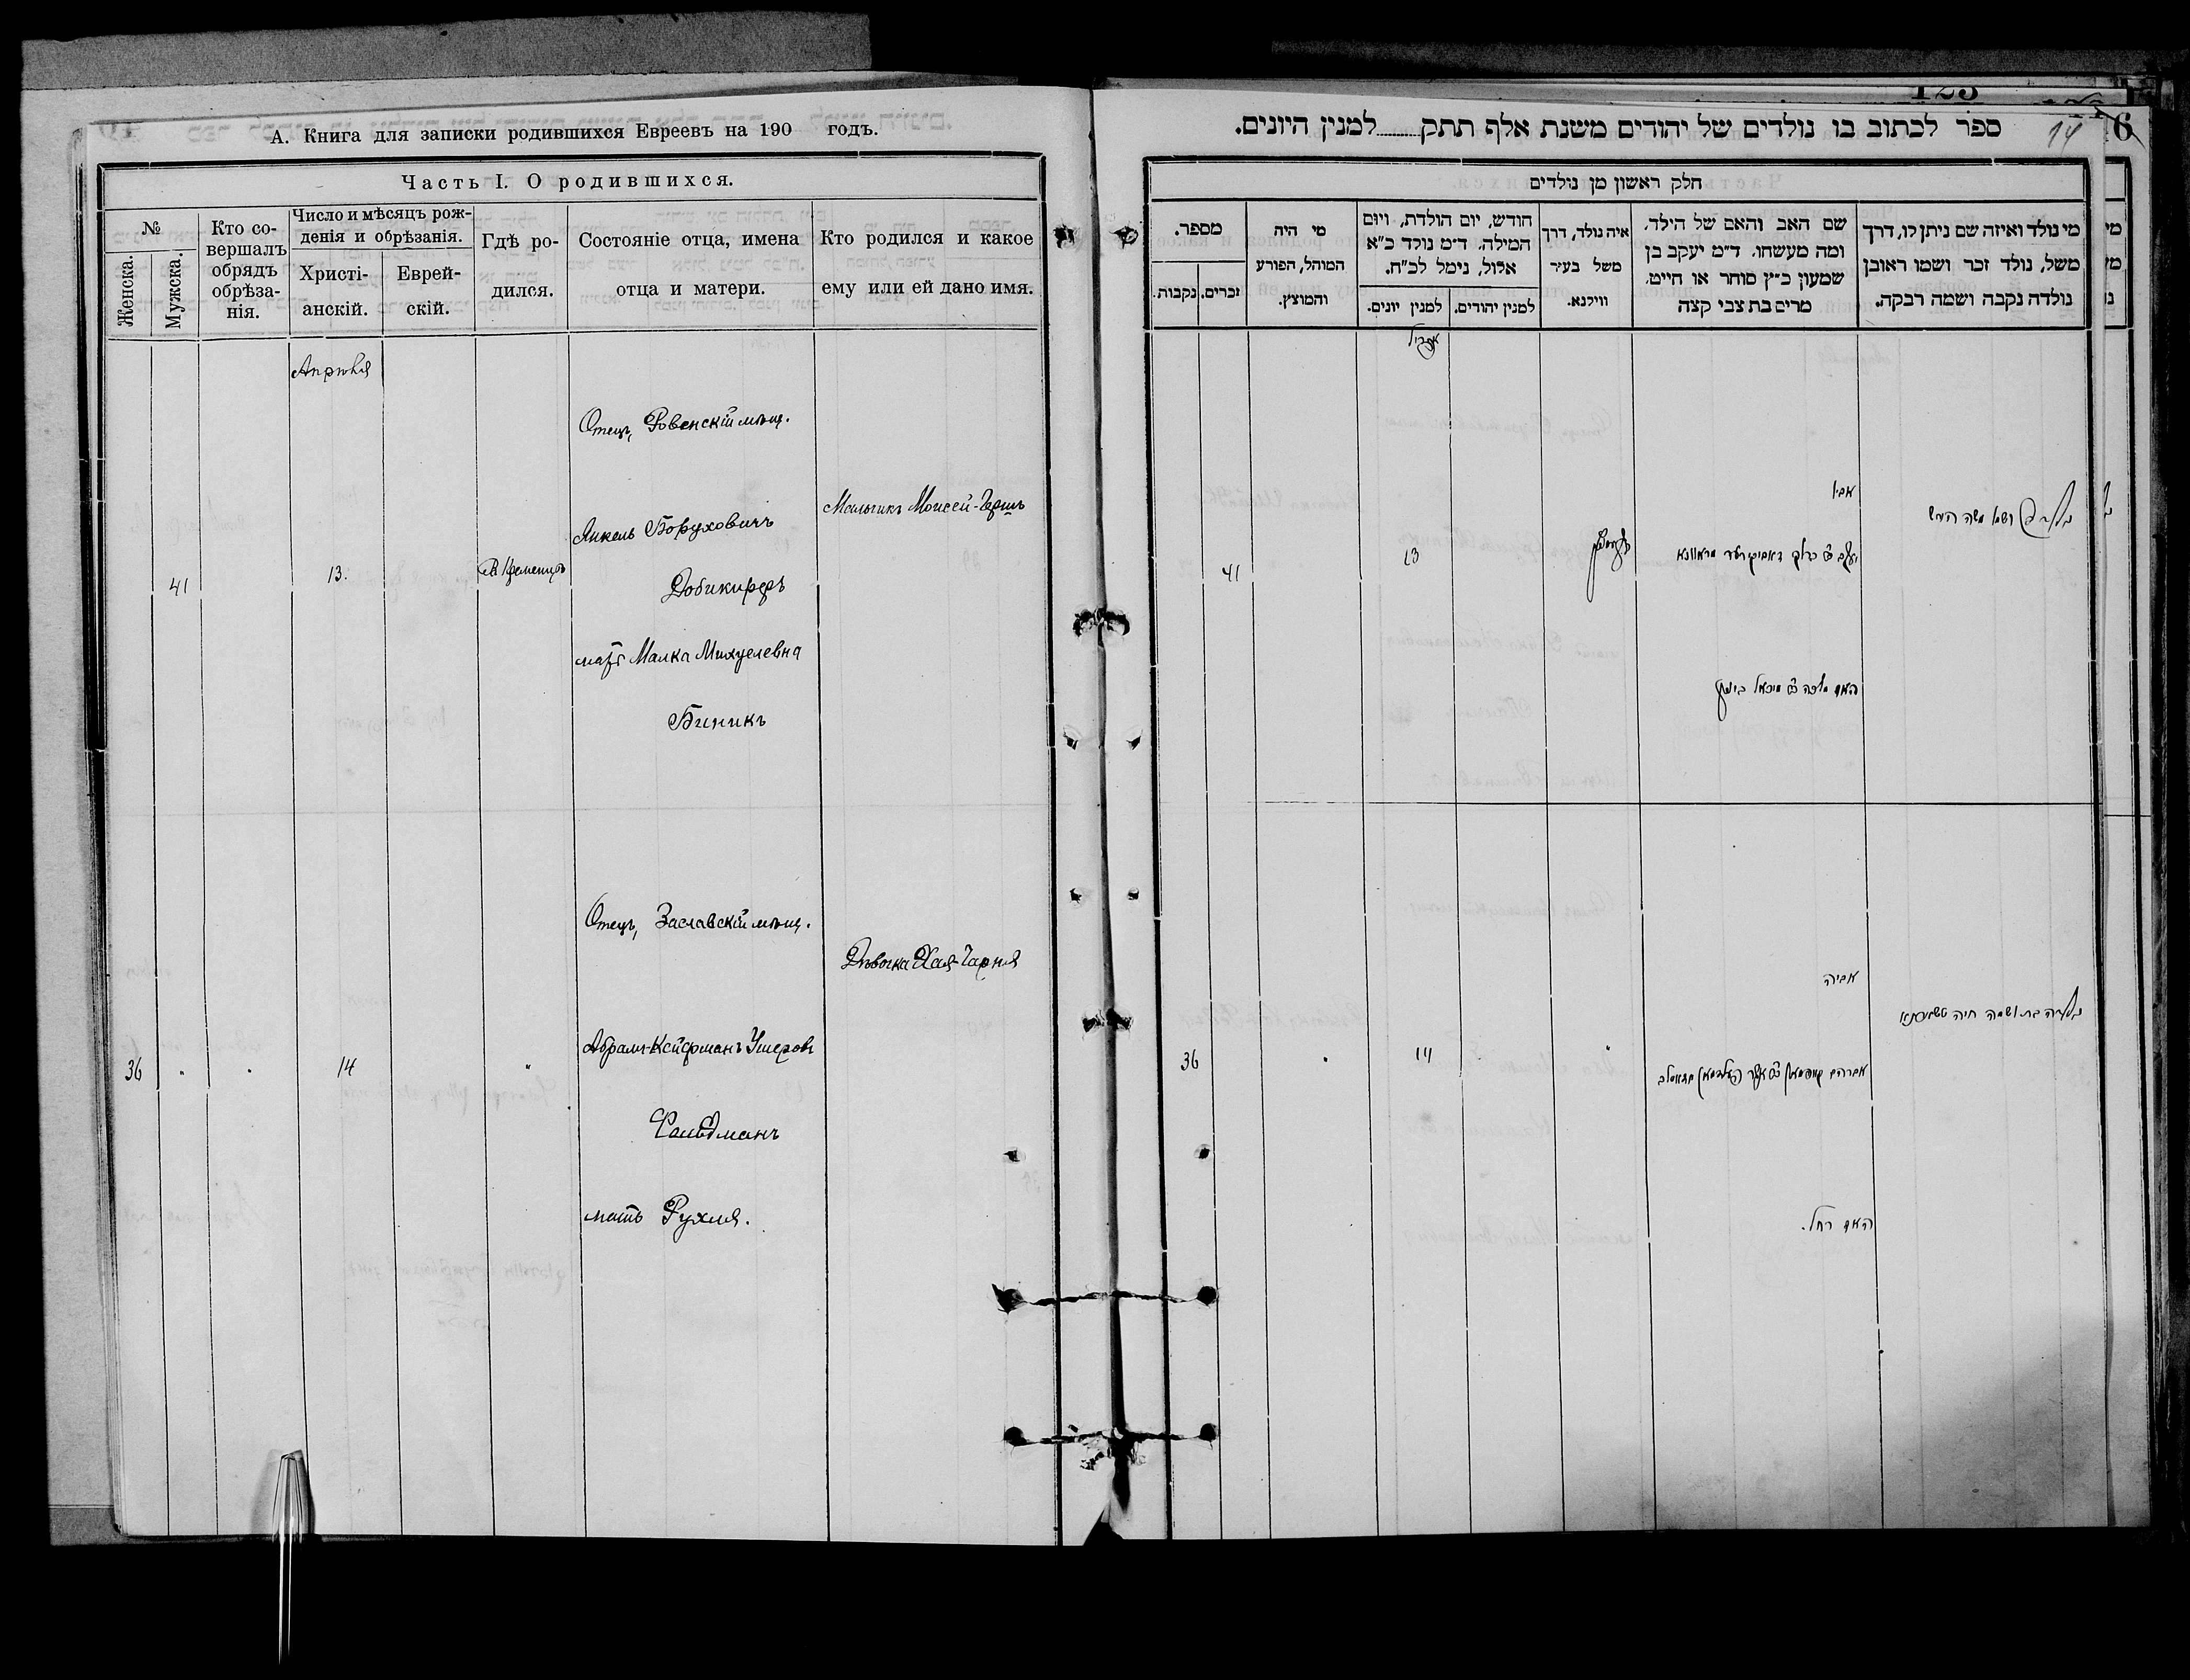 А. Книга для записки родившихся Евреевъ на 190 годъ.
Часть I. О родившихся.
№
Женска.
Мужска.
Кто со-
вершалъ
обрядъ
обрѣза-
нія.
Число и мѣсяцъ рож-
денія и обрѣзанія.
Христі-
анскій.
Еврей-
скій.
Гдѣ ро-
дился.
Состояніе отца, имена
отца и матери.
Кто родился и какое
ему или ей дано имя.
Апрѣля
Отецъ, Ровенскій мѣщ.
Мальчикъ Моисей-Герш
Янкель Боруховичъ
41 13. В Кременцѣ
Добикирфъ
мать Малка Михуелевна
Биникъ
Отецъ, Заславскій мѣщ.
Дѣвочка Хая-Чарня
Абрамъ-Кейфманъ Ушеровъ
36 " " 14 "
Фальдманъ
мать Рухля.
ספר לכתוב בו נולדים של יהודים משנת אלף תתק למנין היונים.
14
6
123
חלק ראשון מן נולדים
מספר.
זכרים.
נקבות.
מי היה
המוהל, הפורע
והמוצץ.
חודש, יום הולדת, ויום
המילה. ד״מ נולד כ״א
אלול, נימל לכ״ח.
למנין יהודים.
למנין יונים.
איה נולד, דרך
משל בעיר
ווילנא.
שם האב והאם של הילד,
ומה מעשהו. ד״מ יעקב בן
שמעון כ״ץ סוחר או חייט.
מרים בת צבי קצה
מי נולד ואיזה שם ניתן לו, דרך
משל, נולד זכר ושמו ראובן
נולדה נקבה ושמה רבקה.
אפריל
אביו
ושמו משה הירש
41 13
האם מלכה בת מיכאל ביניק
אביה
ושמה חיה טשארנא
36 " 14 "
האם רחל.